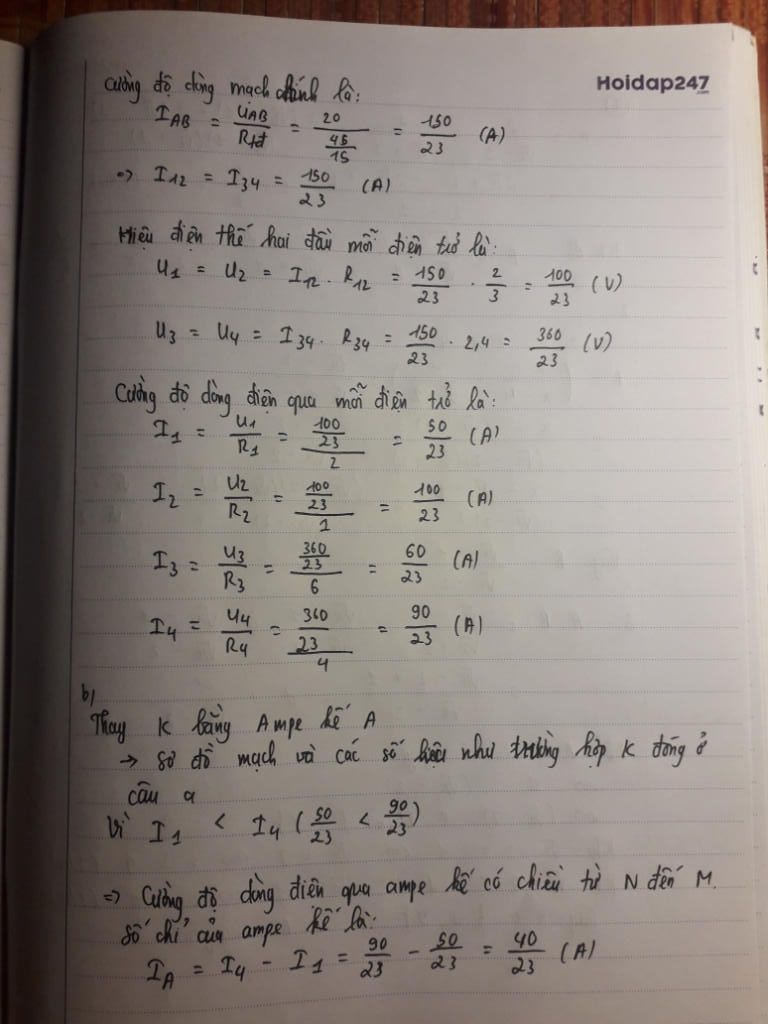 Hoidap247
.com
Cường độ dòng mạch chính là:
I_AB = U_AB/R_tđ = 20/(46/15) = 150/23 (A)
=> I12 = I34 = 150/23 (A)
Hiệu điện thế hai đầu mỗi điện trở là:
U1 = U2 = I12 . R12 = 150/23 . 2/3 = 100/23 (V)
U3 = U4 = I34 . R34 = 150/23 . 2,4 = 360/23 (V)
Cường độ dòng điện qua mỗi điện trở là:
I1 = U1/R1 = (100/23)/2 = 50/23 (A)
I2 = U2/R2 = (100/23)/1 = 100/23 (A)
I3 = U3/R3 = (360/23)/6 = 60/23 (A)
I4 = U4/R4 = (360/23)/4 = 90/23 (A)
b)
Thay K bằng Ampe kế A
→ sơ đồ mạch và các số liệu như trường hợp K đóng ở
câu a
Vì I1 < I4 (50/23 < 90/23)
=> Cường độ dòng điện qua ampe kế có chiều từ N đến M.
Số chỉ của ampe kế là:
I_A = I4 - I1 = 90/23 - 50/23 = 40/23 (A)